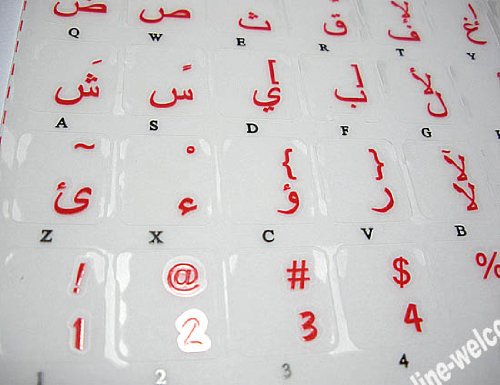 ض ص ث ق لإ ف غ
Q W E R T Y
َ ً [ ] لأ
ش س ي ب ل
A S D F G
~ ْ { } لآ
ئ ء ؤ ر لا
Z X C V B
! @ # $ %
1 2 3 4
1 2 3 4
line-welco